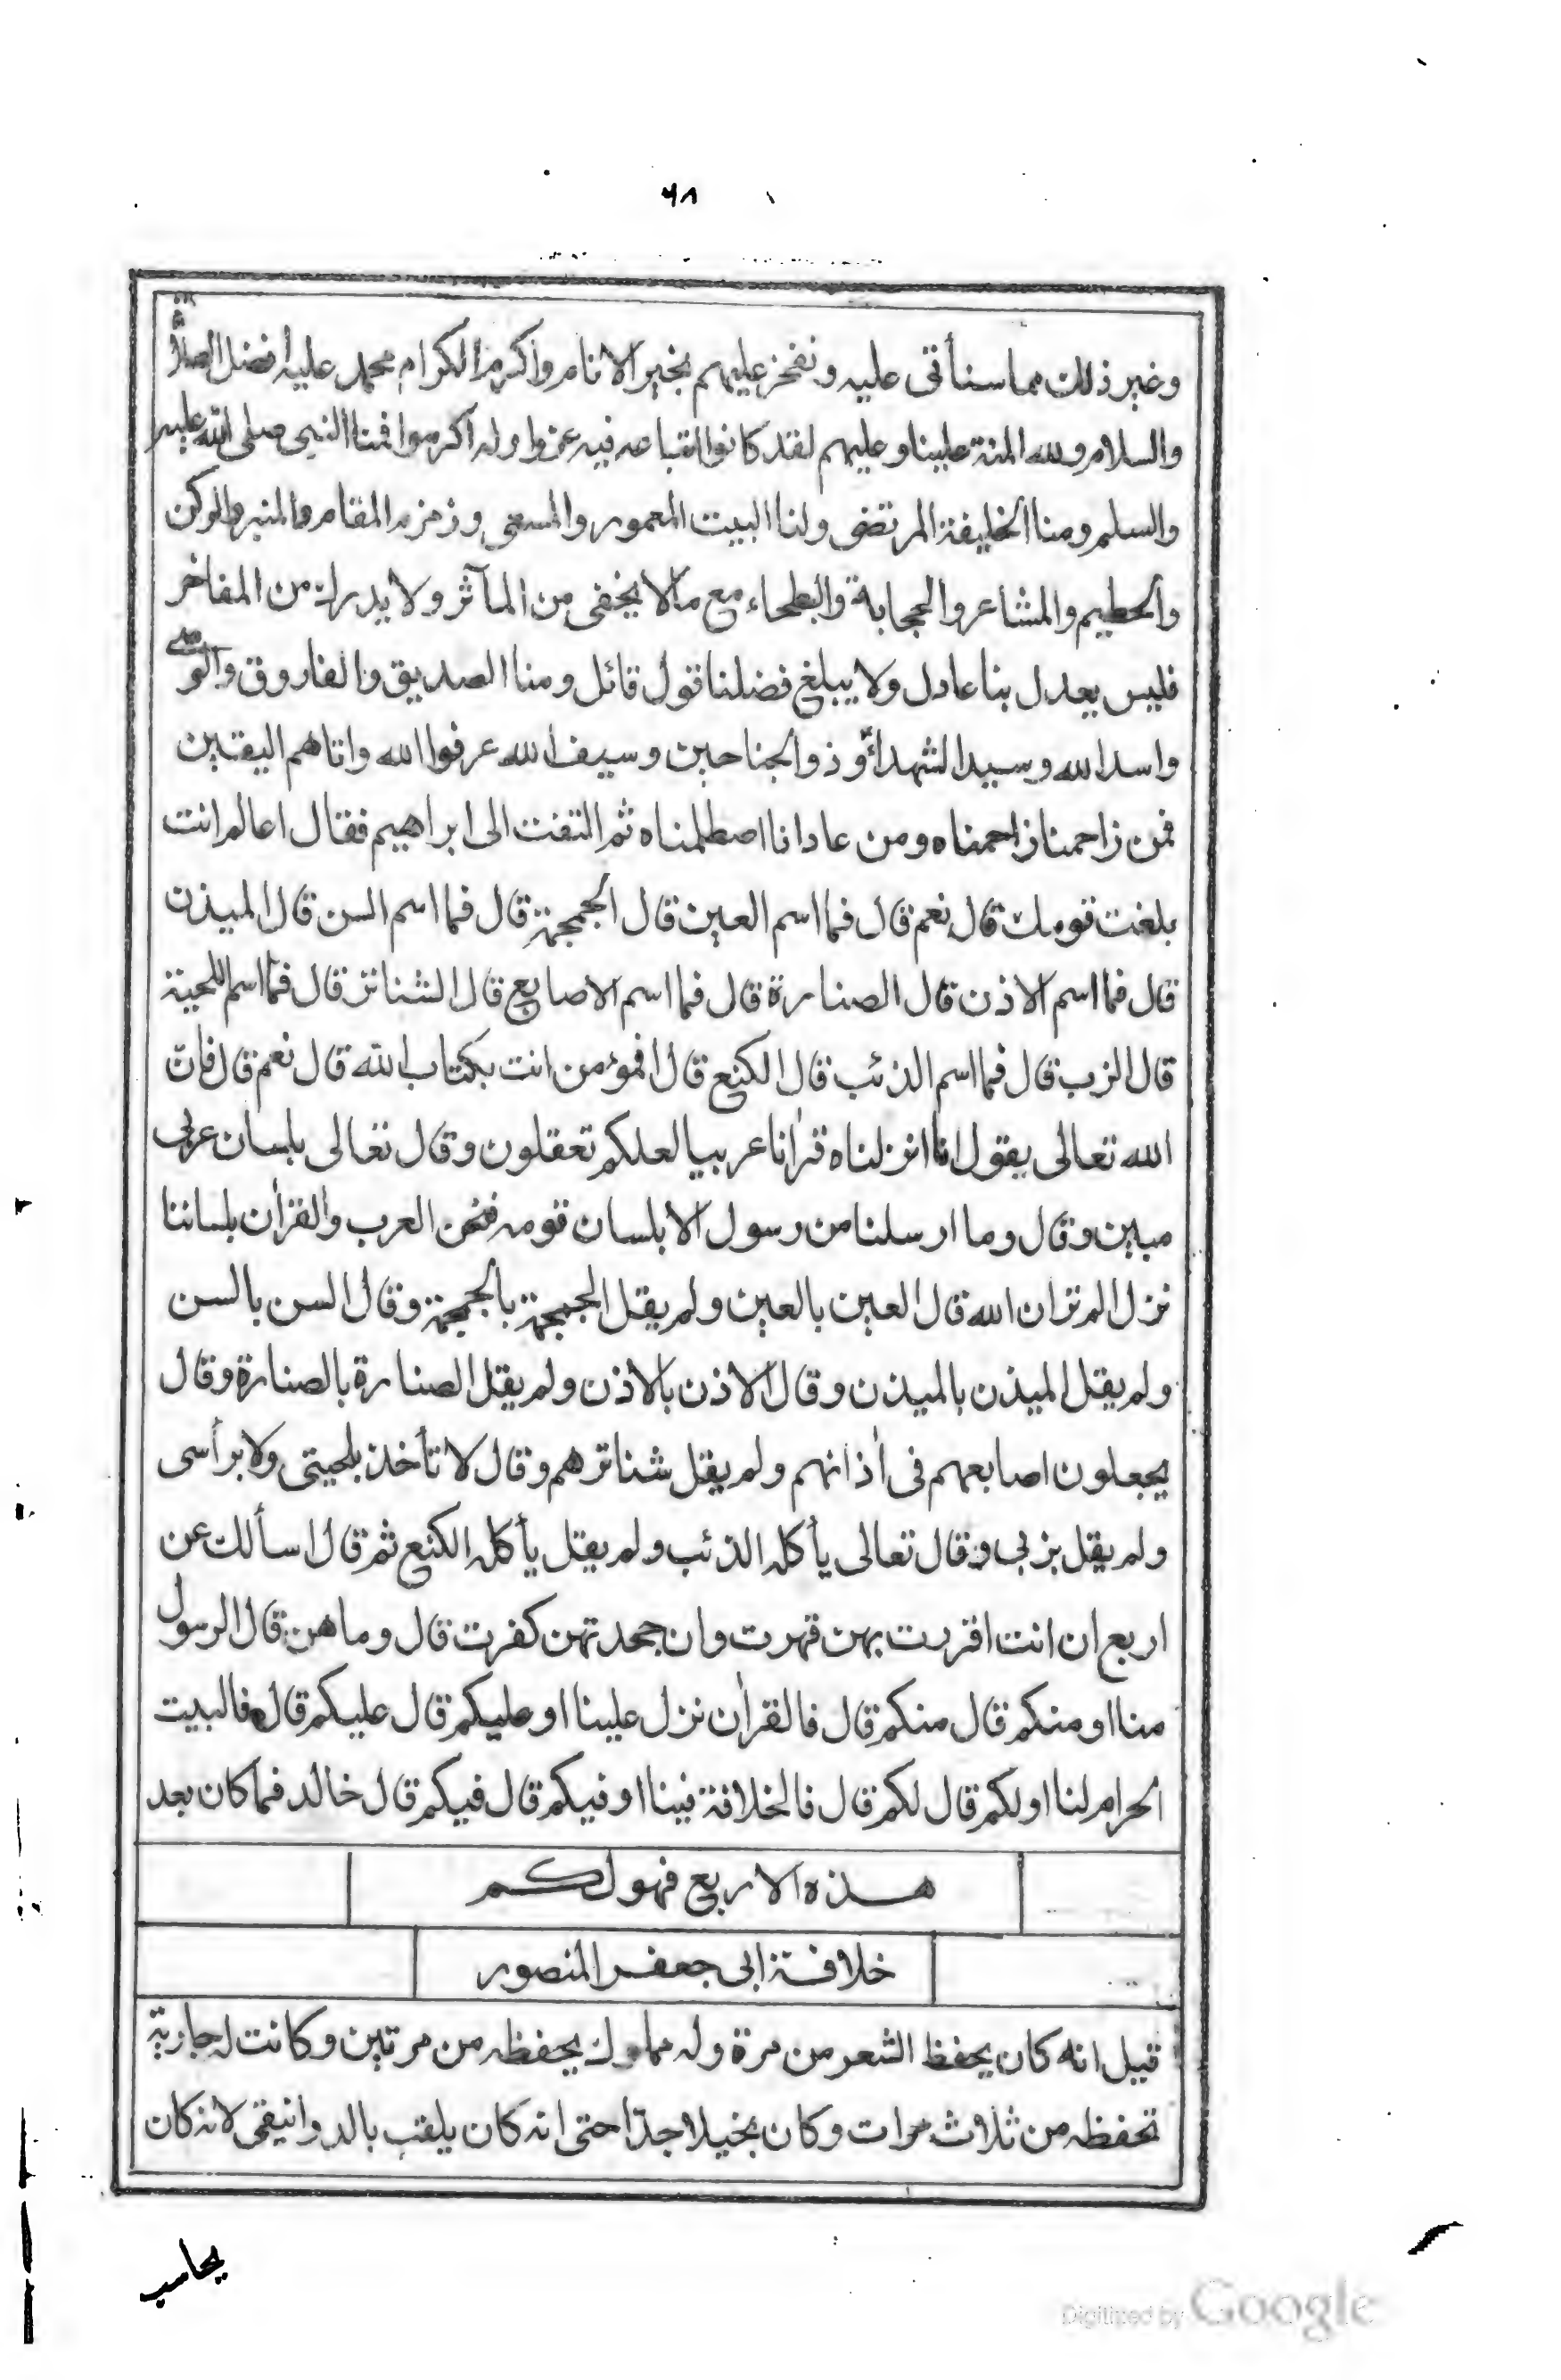 ٦٨
وغير ذلك مما سنأتى عليه ونفخر عليهم بخير الانام واكرم الكرام محمد عليه أفضل الصلاة
والسلام ولله المنة علينا وعليهم لقد كانوا اتباعه فيه عزوا وله اكرموا فمنا النبي صلى الله عليه
والسلم ومنا الخليفة المرتضى ولنا البيت المعمور والمسعى وزمزم والمقام والمنبر والركن
والحطيم والمشاعر والحجابة والبطحاء مع ما لا يخفى من المآثر ولا يدرك من المفاخر
فليس يعدل بنا عادل ولا يبلغ فضلنا قول قائل ومنا الصديق والفاروق والوصى
واسد الله وسيد الشهداء وذو الجناحين وسيف الله عرفوا الله واتاهم اليقين
فمن زاحمنا زاحمناه ومن عادانا اصطلمناه ثم التفت الى ابراهيم فقال اعالم انت
بلغت قومك قال نعم قال فما اسم العين قال الجمجمة قال فما اسم السن قال الميذن
قال فما اسم الاذن قال الصنارة قال فما اسم الاصابع قال الشناتر قال فما اسم اللحية
قال الزب قال فما اسم الذئب قال الكنع قال افمؤمن انت بكتاب الله قال نعم قال فان
الله تعالى يقول انا انزلناه قرانا عربيا لعلكم تعقلون وقال تعالى بلسان عربى
مبين وقال وما ارسلنا من رسول الا بلسان قومه فنحن العرب والقران بلساننا
نزل الم تر ان الله قال العين بالعين ولم يقل الجمجمة بالجمجمة وقال السن بالسن
ولم يقل الميذن بالميذن وقال الاذن بالاذن ولم يقل الصنارة بالصنارة وقال
يجعلون اصابعهم فى اذانهم ولم يقل شناترهم وقال لا تأخذ بلحيتى ولا برأسى
ولم يقل بزبى وقال تعالى يأكله الذئب ولم يقل يأكله الكنع ثم قال اسألك عن
اربع ان انت اقررت بهن قهرت وان جحدتهن كفرت قال وما هن قال الرسول
منا او منكم قال منكم قال فالقران نزل علينا او عليكم قال عليكم قال فالبيت
الحرام لنا او لكم قال لكم قال فالخلافة فينا او فيكم قال فيكم قال خالد فما كان بعد
هذه الاربع فهو لكم
خلافة ابى جعفر المنصور
قيل انه كان يحفظ الشعر من مرة وله مملوك يحفظه من مرتين وكانت له جارية
تحفظه من ثلاث مرات وكان بخيلا جدّا حتى انه كان يلقب بالدوانيقى لانه كان
يحاسب
Digitized by Google